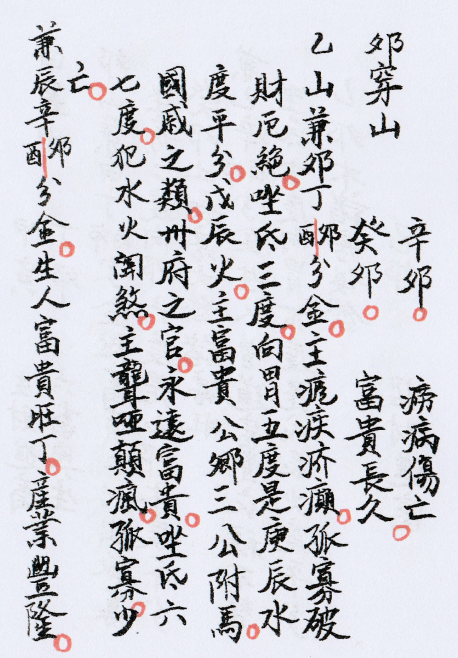 夘穿山
辛夘。癆病傷亡。
癸夘。富貴長久
乙山兼夘丁夘酉分金。主疾疥癩。孤寡破
財厄絕。坐氐三度。向胃五度是庚辰水
度平分。戊辰火。主富貴公卿三公附馬。
國戚之類。卅府之官。永遠富貴。坐氐六
七度。犯水火関煞。主聾啞顛瘋。孤寡少
亡。
兼辰辛夘酉分金。生人富貴旺丁。產業豐隆。